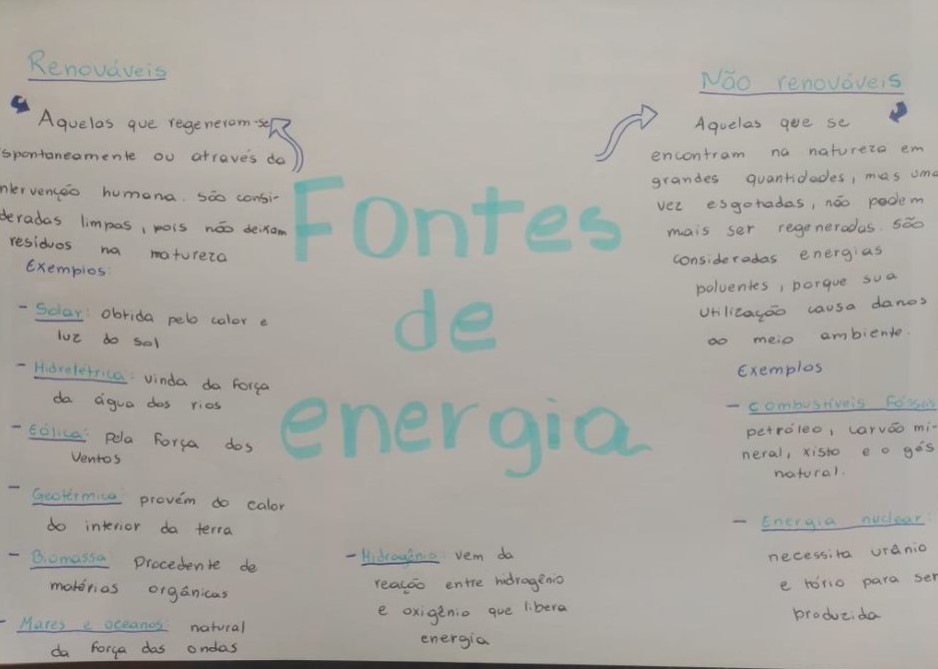 Renováveis
Aquelas que regeneram-se
spontaneamente ou através da
ntervenção humana. são consi-
deradas limpas, pois não deixam
resíduos na natureza
Exemplos:
- Solar: obtida pelo calor e
luz do sol
- Hidrelétrica: vinda da força
da água dos rios
- Eólica: pela força dos
ventos
- Geotérmica: provém do calor
do interior da terra
- Biomassa: Procedente de
matérias orgânicas
- Mares e oceanos: natural
da força das ondas
Fontes
de
energia
- Hidrogênio: vem da
reação entre hidrogênio
e oxigênio que libera
energia
Não renováveis
Aquelas que se
encontram na natureza em
grandes quantidades, mas uma
vez esgotadas, não podem
mais ser regeneradas. São
consideradas energias
poluentes, porque sua
utilização causa danos
ao meio ambiente.
Exemplos
- Combustíveis fósseis
petróleo, carvão mi-
neral, xisto e o gás
natural.
- Energia nuclear:
necessita urânio
e tório para ser
produzida